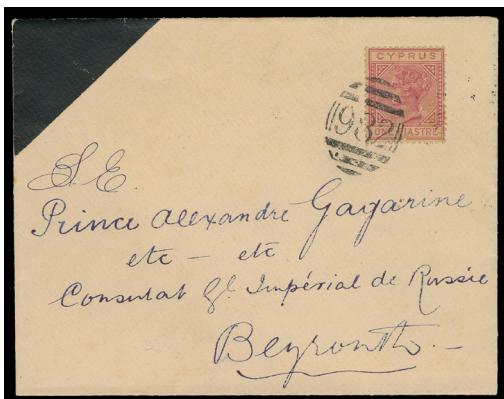 CYPRUS
ONE PIASTRE
982
S. E.
Prince Alexandre Gagarine
etc - etc
Consulat Gl Impérial de Russie
Beyrouth. -